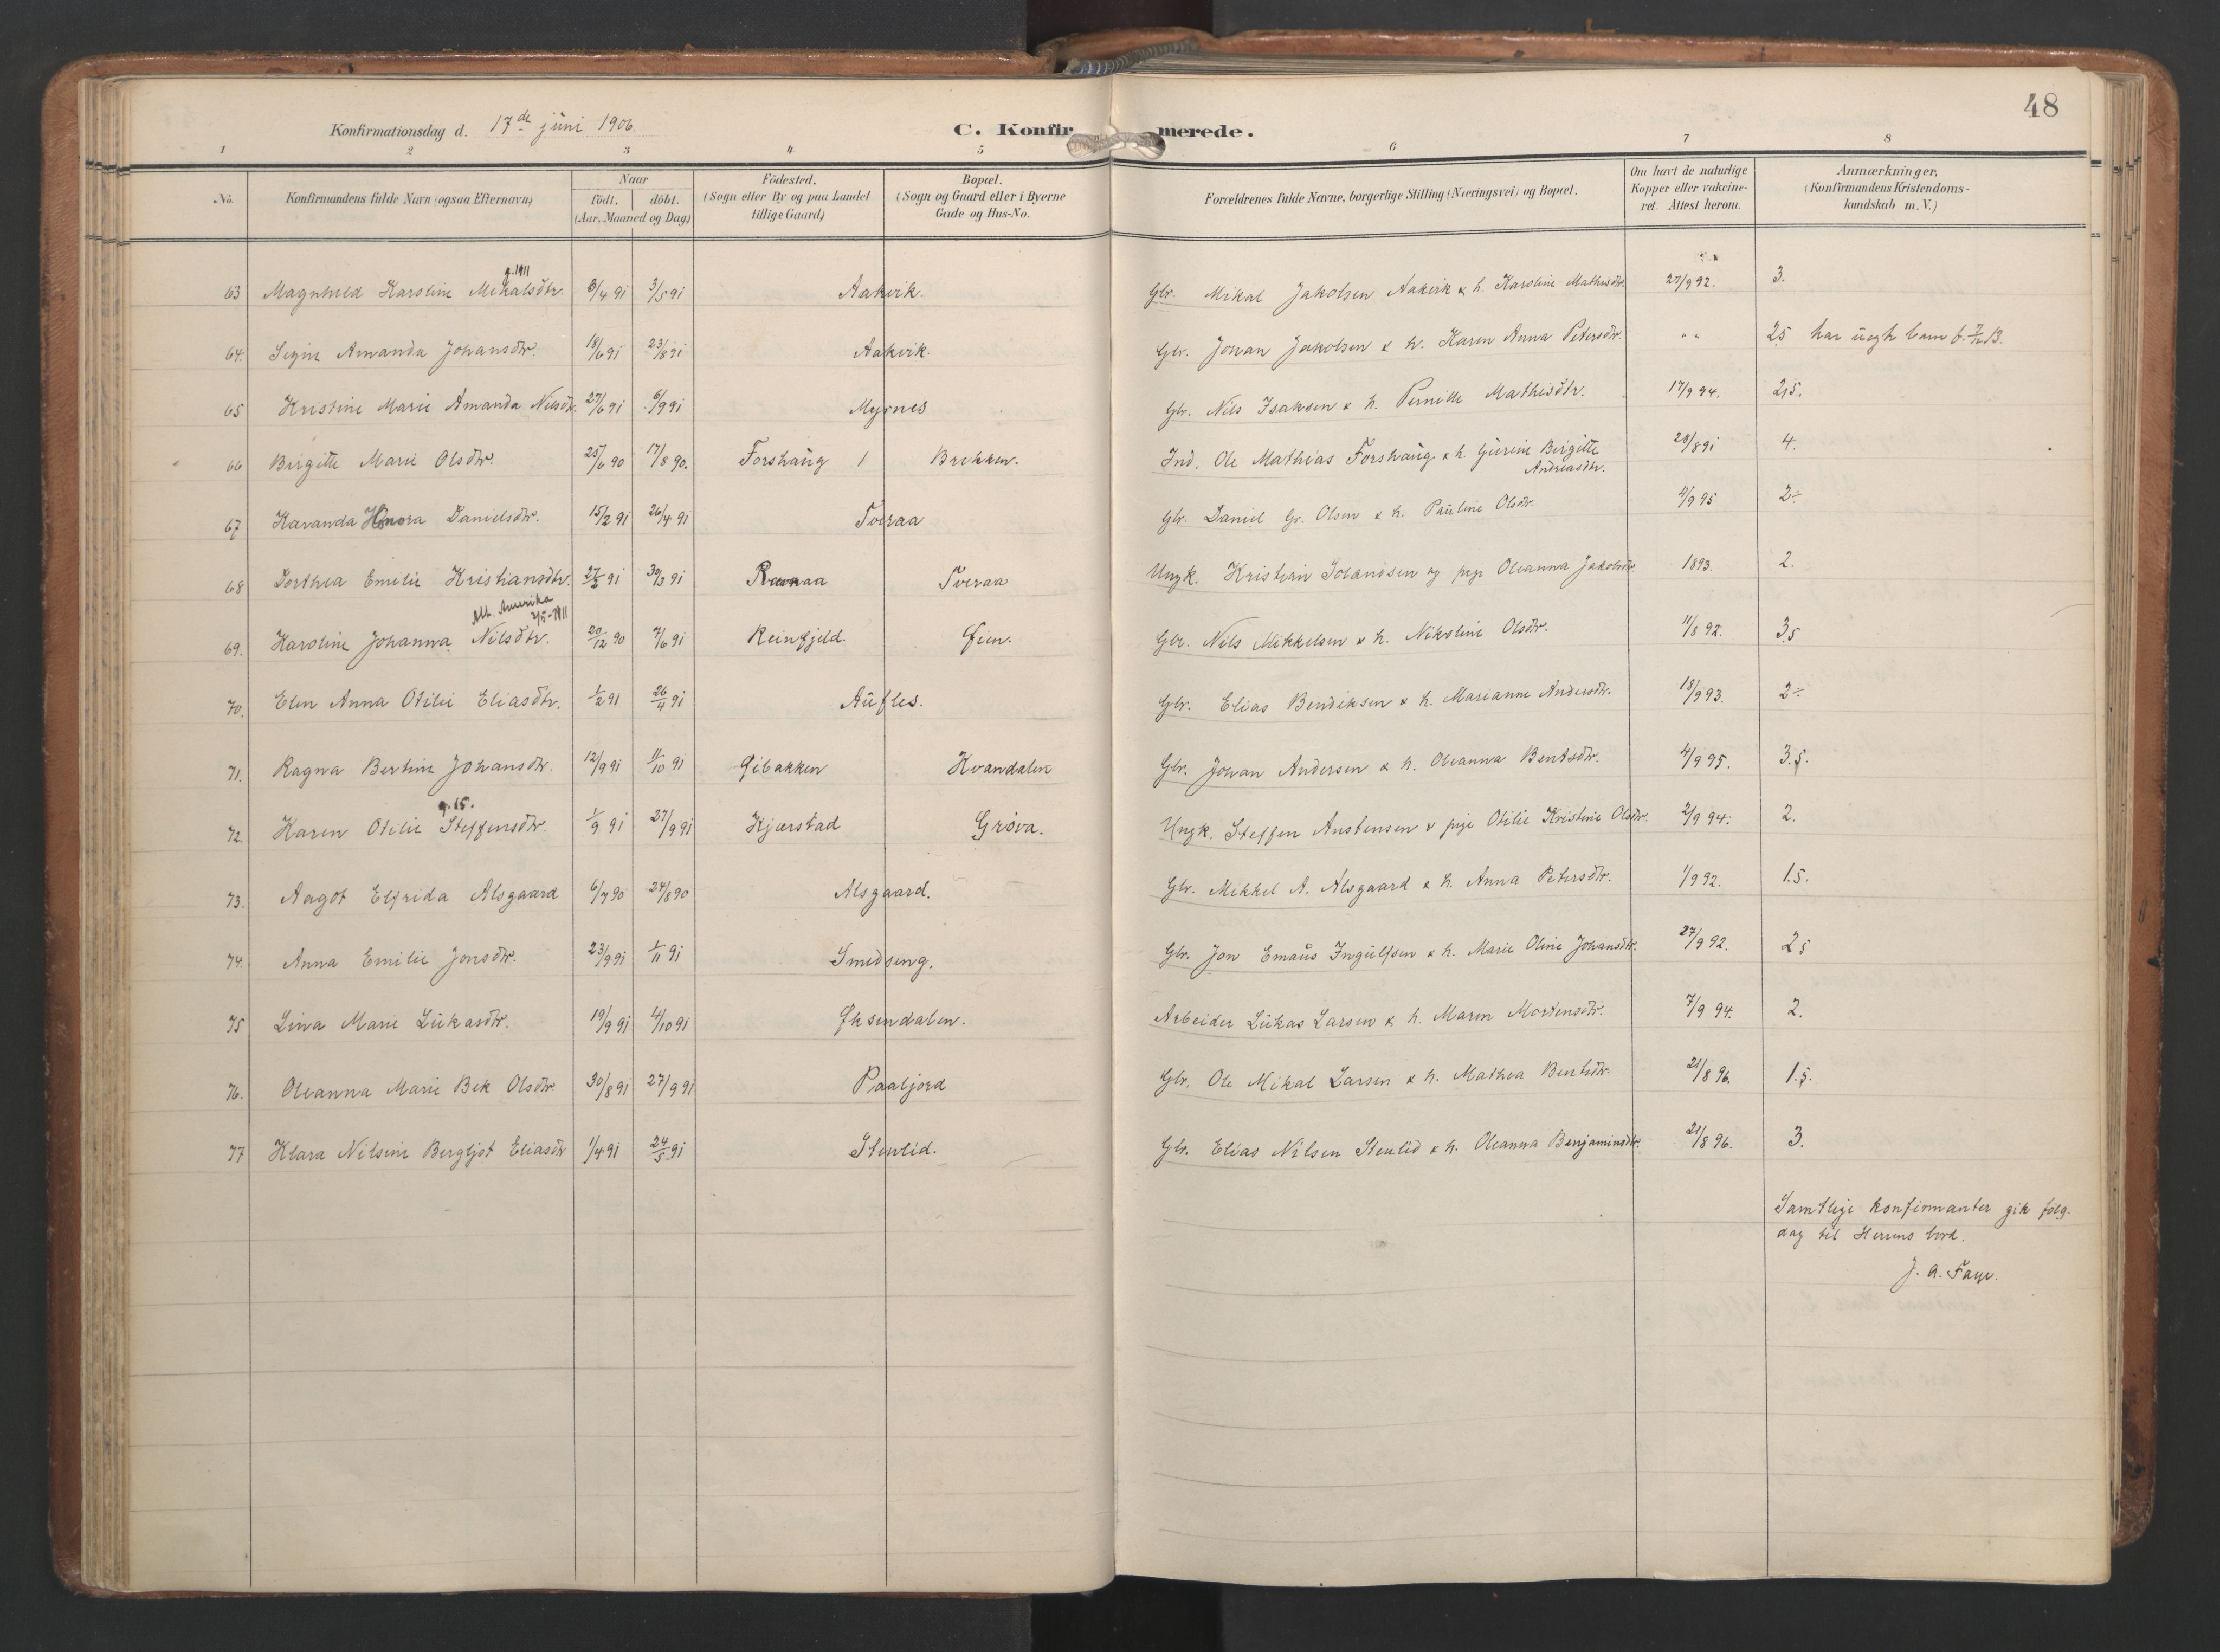 48
Konfirmationsdag d. 17de juni 1906.
C. Konfirmerede.
1 2 3 4 5 6 7 8
No. Konfirmandens fulde Navn (ogsaa Efternavn) Naar født. døbt. (Aar, Maaned og Dag) Fødested. (Sogn eller By og paa Landet tillige Gaard) Bopæl. (Sogn og Gaard eller i Byerne Gade og Hus-No. Forældrenes fulde Navne, borgerlige Stilling (Næringsvei) og Bopæl. Om havt de naturlige Kopper eller vakcineret. Attest herom. Anmærkninger, (Konfirmandens Kristendomskundskab m. V.)
g. 1911
63 Magnhild Karoline Mikalsdtr. 3/4 91 3/5 91 Aakvik. Gbr. Mikal Jakobsen Aakvik & h. Karoline Mathisdtr. 27/9 92. 3.
64. Signe Amanda Johansdtr. 18/6 91 23/8 91 Aakvik. Gbr. Johan Jakobsen & h. Karen Anna Petersdtr. " " 25 har uegte barn f. 7/12 13.
65 Kristine Marie Amanda Nilsdtr. 27/6 91 6/9 91 Myrnes Gbr. Nils Isaksen & h. Pernille Mathisdtr. 17/9 94. 2,5.
66 Birgitte Marie Olsdtr. 25/6 90 17/8 90. Forshaug Brekken. Ind. Ole Mathias Forshaug & h. Gurine Birgitte Andreasdtr. 28/8 91 4.
67 Karanda Honora Danielsdtr. 15/2 91 26/4 91 Tveraa Gbr. Daniel Gr. Olsen & h. Pauline Olsdtr. 4/9 95 2÷
68 Dorthea Emilie Kristiansdtr. 27/2 91 30/3 91 Ranaa Tveraa Ungk. Kristian Johansen og pige Oleanna Jakobsdtr. 1893. 2.
Att. Amerika 2/5-1911
69. Karoline Johanna Nilsdtr. 20/12 90 7/6 91 Reinfjeld. Øien. Gbr. Nils Mikkelsen & h. Nikoline Olsdtr. 11/8 92. 3,5
70. Elen Anna Otilie Eliasdtr. 1/2 91 26/4 91 Aufles. Gbr. Elias Bendiksen & h. Marianne Andersdtr. 18/9 93. 2÷
71. Ragna Bertine Johansdtr. 12/9 91 11/10 91 Øibakken Kvandalen Gbr. Johan Andersen & h. Oleanna Bentsdtr. 4/9 95. 3.5.
g. 15.
72. Karen Otilie Steffensdtr. 1/9 91 27/9 91 Kjærstad Grøva. Ungk. Steffen Austensen & pige Otilie Kristine Olsdtr. 2/9 94. 2.
73. Aagot Elfrida Alsgaard 6/7 90 24/8 90 Alsgaard. Gbr. Mikkel A. Alsgaard & h. Anna Petersdtr. 1/9 92. 1.5.
74. Anna Emilie Jonsdtr. 23/9 91 1/11 91 Smedseng. Gbr. Jon Emaus Ingulfsen & h. Marie Oline Johansdtr. 27/9 92. 25
75 Lina Marie Lukasdtr. 19/9 91 4/10 91 Øksendalen. Arbeider Lukas Larsen & h. Maren Mortensdtr. 7/9 94. 2.
76. Oleanna Marie Bek Olsdtr. 30/8 91 27/9 91 Paaljord Gbr. Ole Mikal Larsen & h. Mathea Bentsdtr. 21/8 96. 1.5.
77 Klara Nilsine Bergljot Eliasdtr 1/4 91 24/5 91 Stenlid. Gbr. Elias Nilsen Stenlid & h. Oleanna Benjaminsdtr. 21/8 96. 3.
Samtlige konfirmanter gik følg.
dag til Herrens bord.
J. A. Faye.